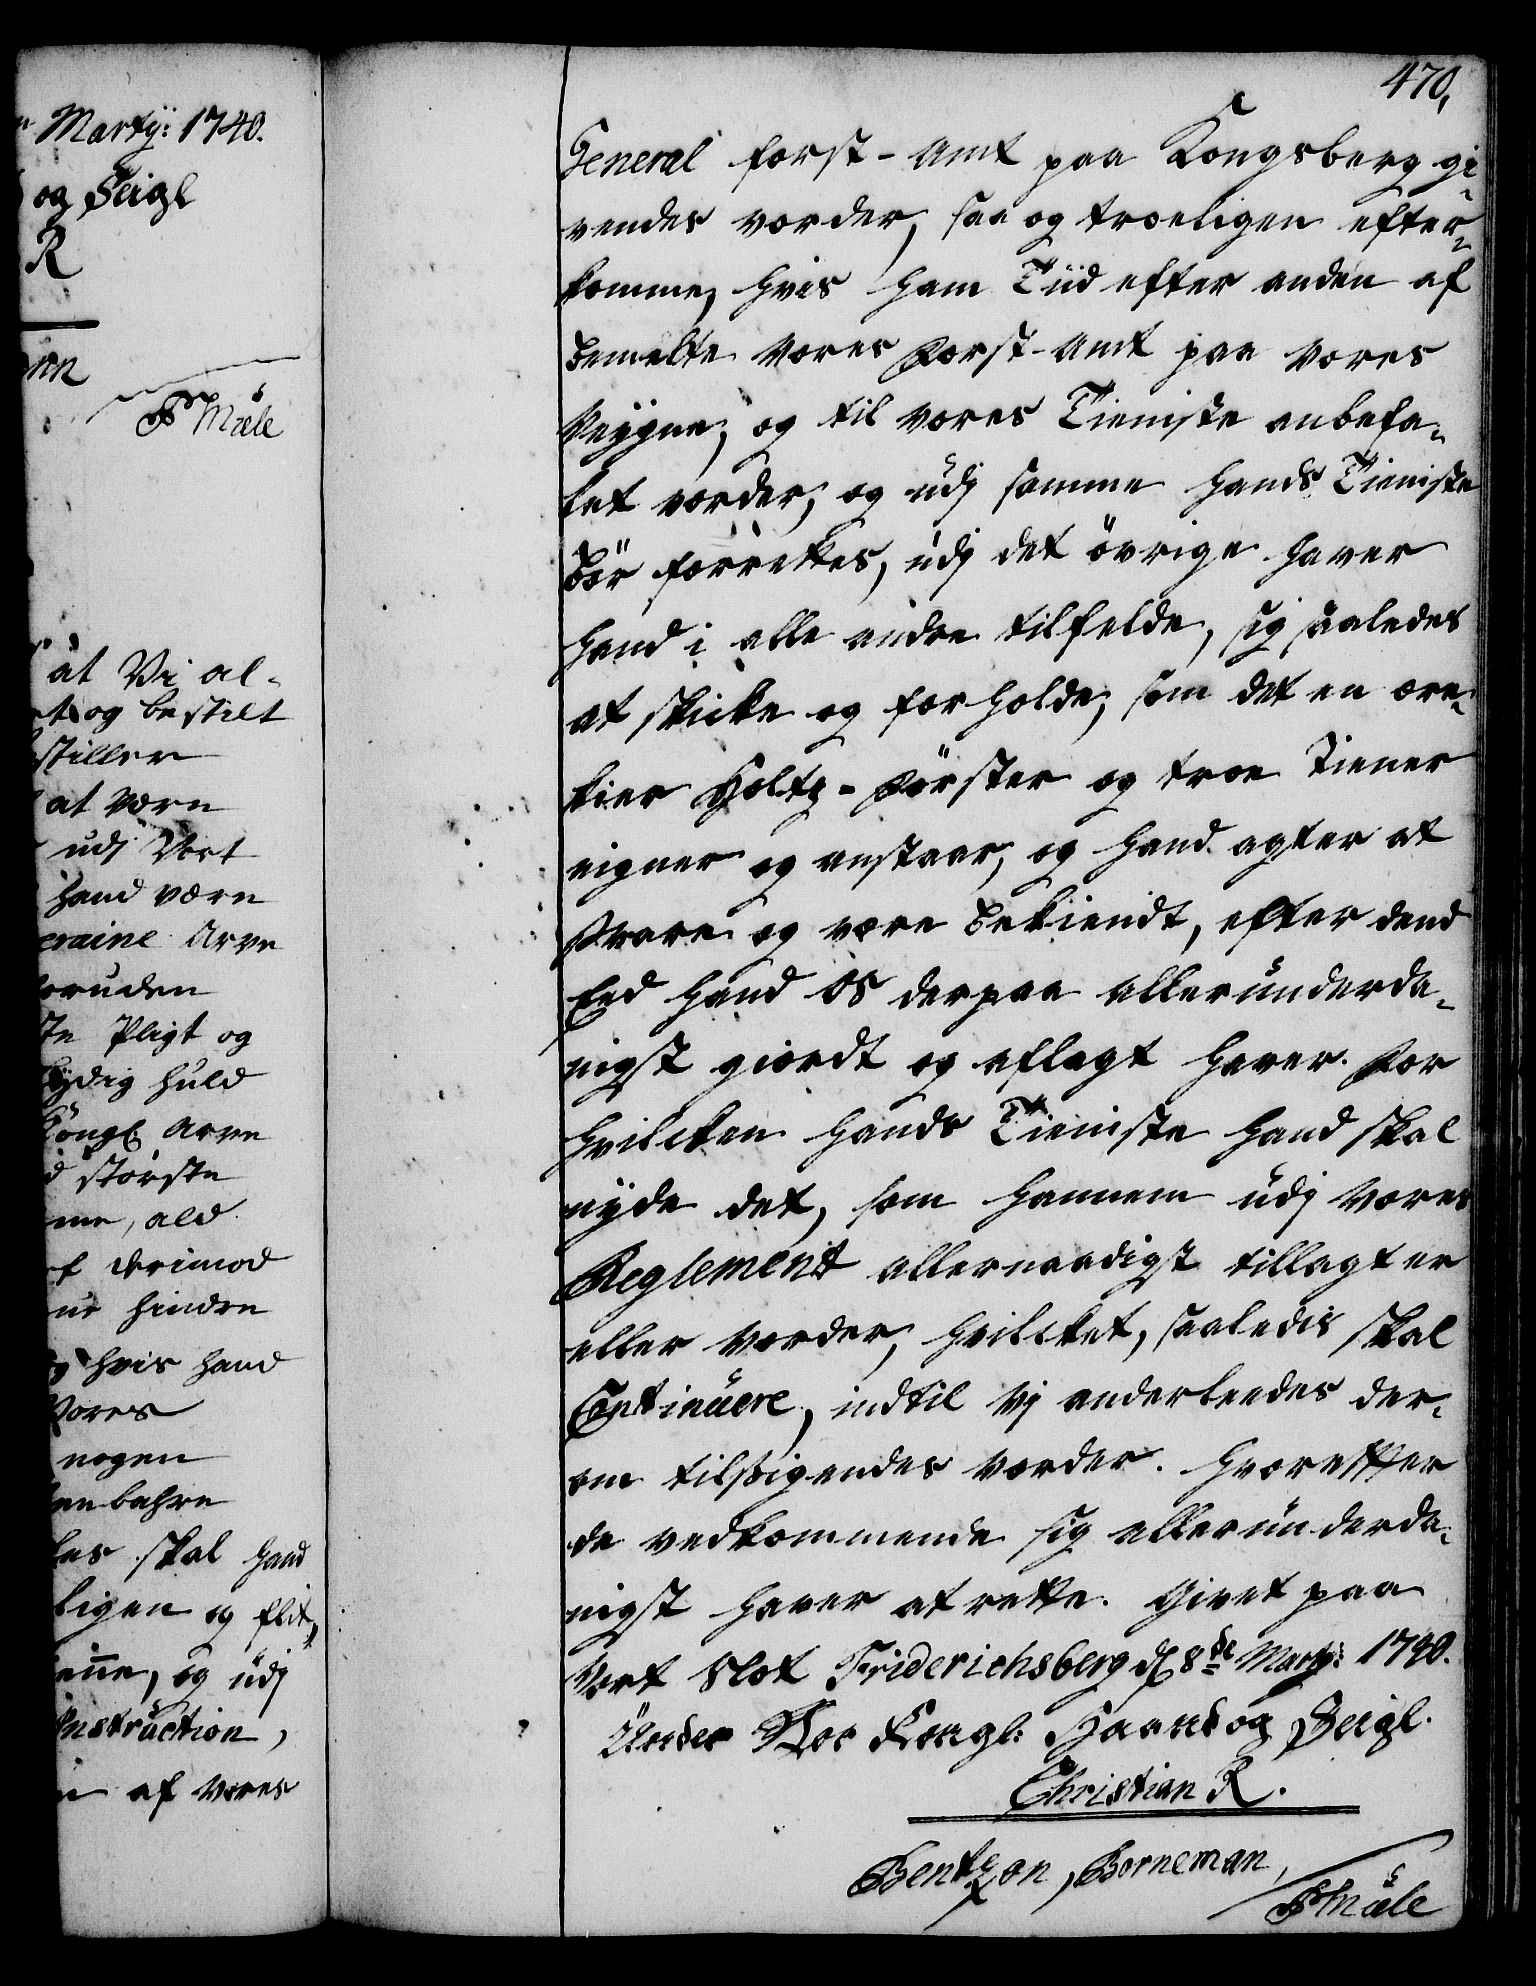 n Martÿ: 1740.
og Seigl
R
F Mæle
at Vi al-
t og bestilt
stiller
at være
udj Vort
hand være
eraine Arve
oruden
te Pligt og
lÿdig huld
Kongl: Arve
d störste
me, ald
f derimod
ne hindre
g hvis hand
Vores
nogen
enbahre
les skal hand
ligen og flit,
ene, og udj
Instruction,
af Vores
470,
General forst-Amt paa Kongsberg gi-
vendes vorder, saa og troeligen efter-
komme, hvis ham Tiid efter anden af
bemelte Vores Forst-Amt paa Vores
Veÿgne, og til Vores Tieniste anbefa-
let vorder, og udj samme hands Tieniste
bör forrettes, udj det övrige haver
hand i alle andre tilfelde, sig saaledes
at skicke og forholde, som det en ære-
kier Holtz-Förster og troe Tiener
eigner og anstaar, og hand agter at
svare og være bekiendt, efter dend
Eed hand Os derpaa allerunderda-
nigst giordt og aflagt haver. For
hvilcken hands Tieniste hand skal
nÿde det, som hannem udj Vores
Reglement allernaadigst tillagt er
eller vorder, hvilcket, saaledis skal
Continuere, indtil Vj anderleedes der-
om tilsigendes vorder. Hvorefter
de vedkommende sig allerunderda-
nigst haver at rette. Givet paa
Vort Slot Friderichsberg d 8de Martÿ: 1740.
Under Vor Kongl: Haand og Seigl.
Christian R.
Bentzon, Borneman,
F Mæle